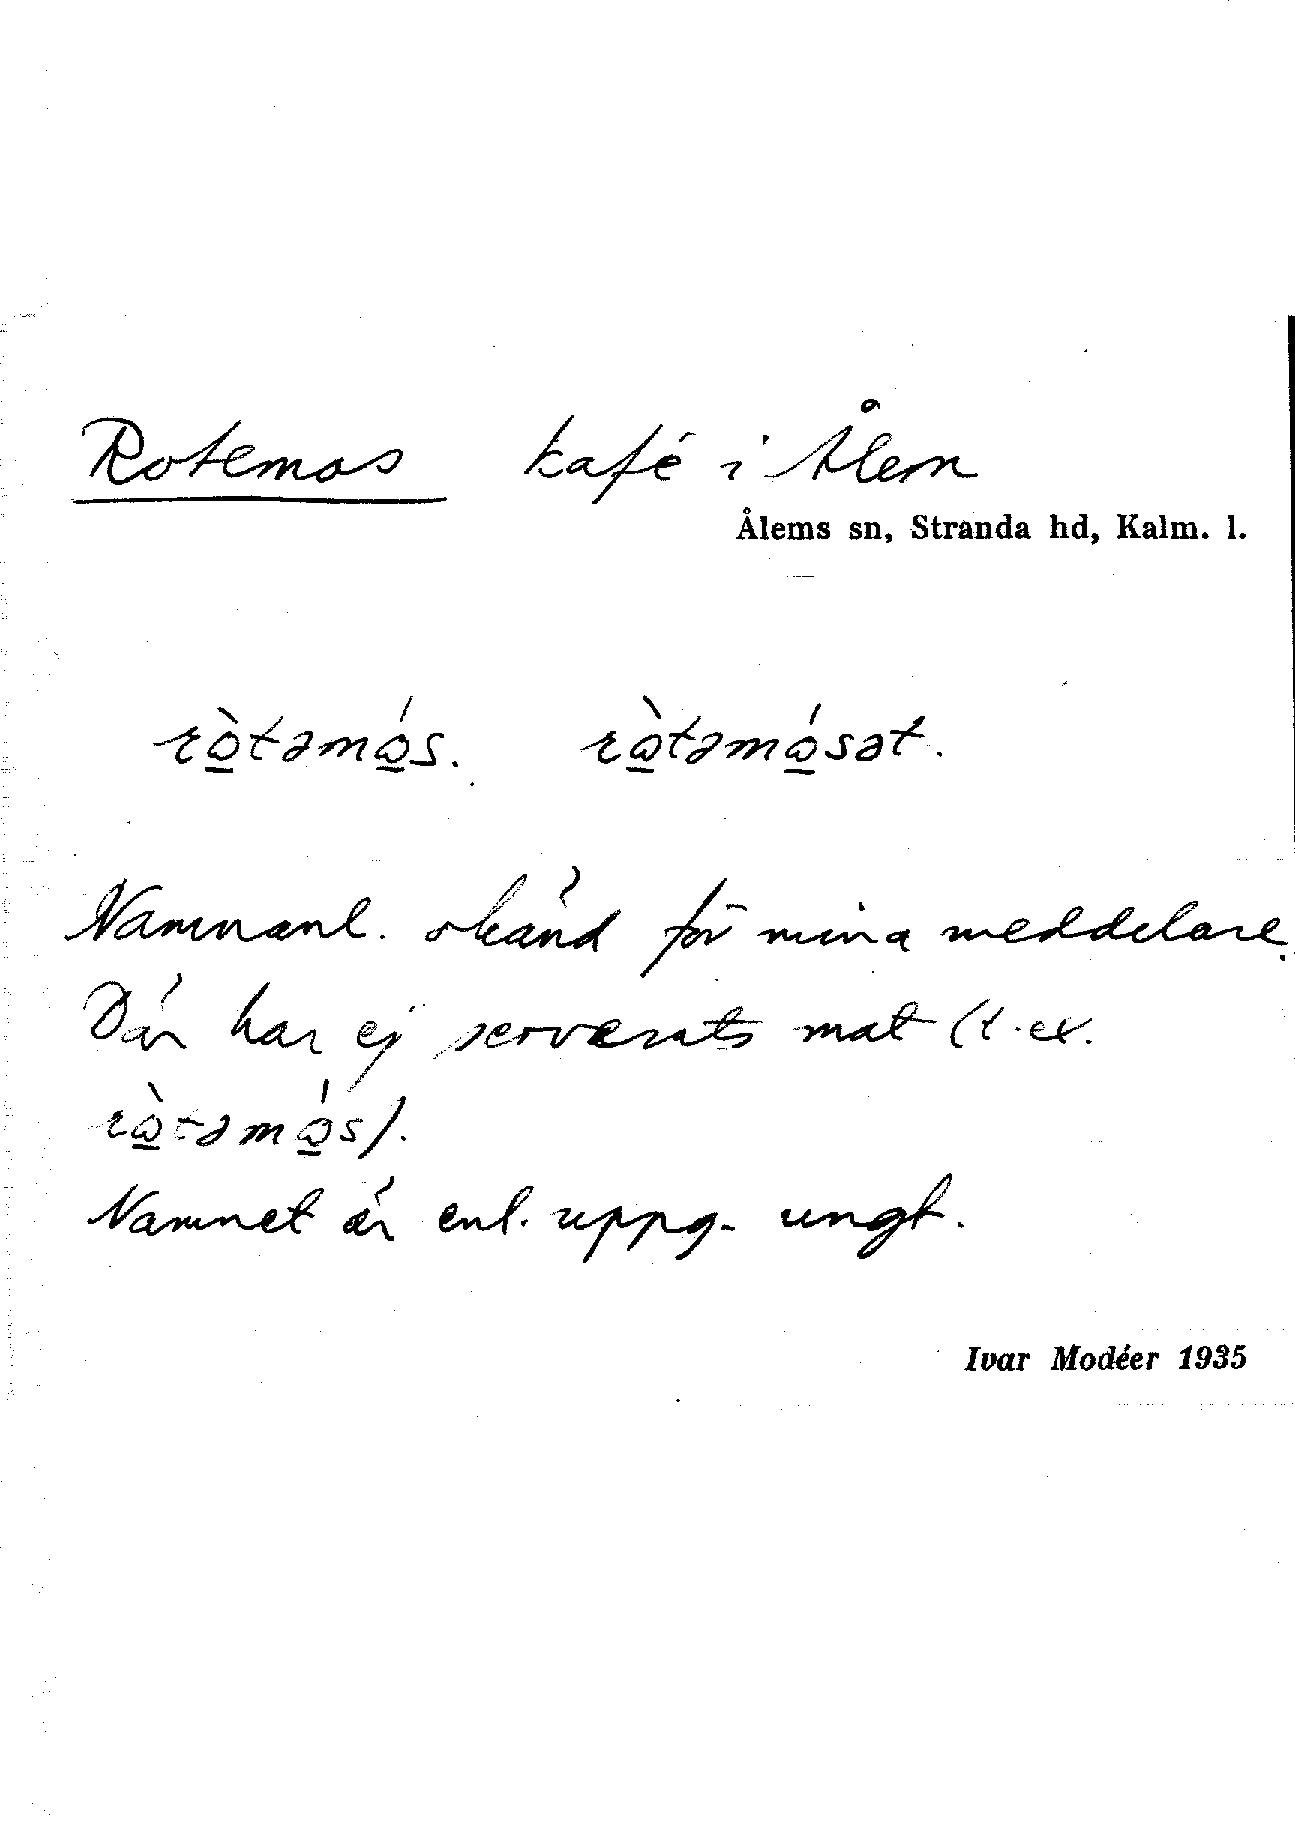 Rotemos kafé i Ålem
Ålems sn, Stranda hd, Kalm. l.
rò̱təmó̱s. rò̱təmó̱sət.
Namnanl. okänd för mina meddelare.
Där har ej serverats mat (t. ex.
rò̱təmó̱s).
Namnet är enl. uppg. ungt.
Ivar Modéer 1935